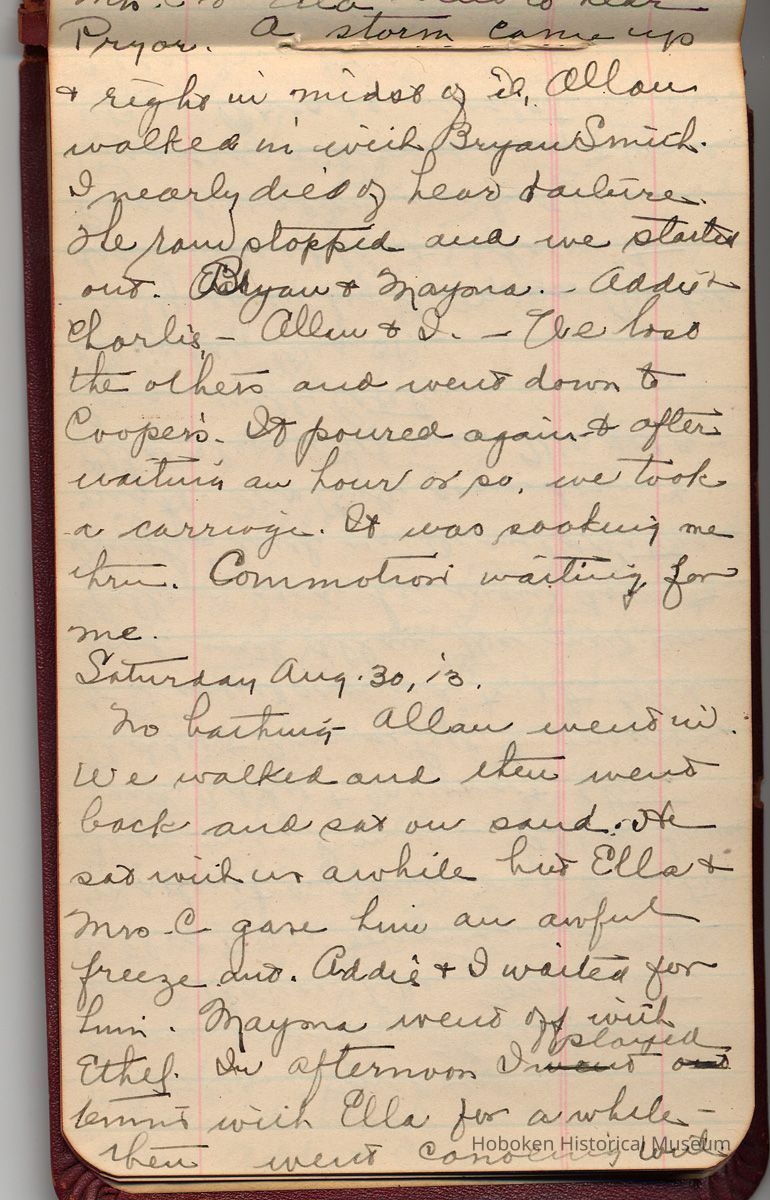 Mrs. C & Ella went to hear
Pryor. A storm came up
& right in midst of it, Allan
walked in with Bryan Smith.
I nearly died of heart failure.
He rain stopped and we started
out. Bryan & Mayma. - Addie &
Charlie, - Allan & I. - We lost
the others and went down to
Cooper's. It poured again & after
waiting an hour or so, we took
a carriage. It was soaking me
thru. Commotion waiting for
me.
Saturday Aug. 30, '13.
No bathing - Allan went in.
We walked and then went
back and sat on sand. He
sat with us awhile but Ella &
Mrs. C gave him an awful
freeze out. Addie & I waited for
him. Mayma went off with
Ethel. In afternoon I went out played
tennis with Ella for a while -
then went canoeing with
Hoboken Historical Museum